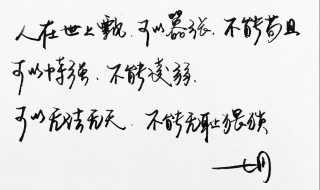 人在世上飘.可以嚣张.不能苟且
可以恃强.不能凌弱.
可以无法无天.不能无耻猥琐